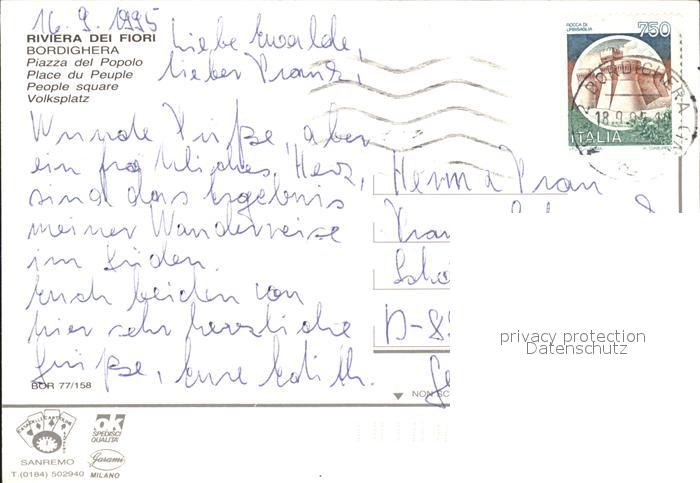 16. 9. 1995
RIVIERA DEI FIORI
BORDIGHERA
Piazza del Popolo
Place du Peuple
People square
Volksplatz
Liebe
lieber Franz,
Wunde Füße, aber
ein fröhliches Herz,
sind das Ergebnis
meiner Wanderreise
im Süden.
Euch beiden von
hier sehr herzliche
Grüße, Eure Edith.
BOR 77/158
ROCCA DI
URBISAGLIA
750
ITALIA
BORDIGHERA
18.9.95
Herrn u Frau
Fran
D-8
privacy protection
Datenschutz
NON SC
SANREMO
T.(0184) 502940
ok
SPEDISCI
QUALITÀ
Garami
MILANO